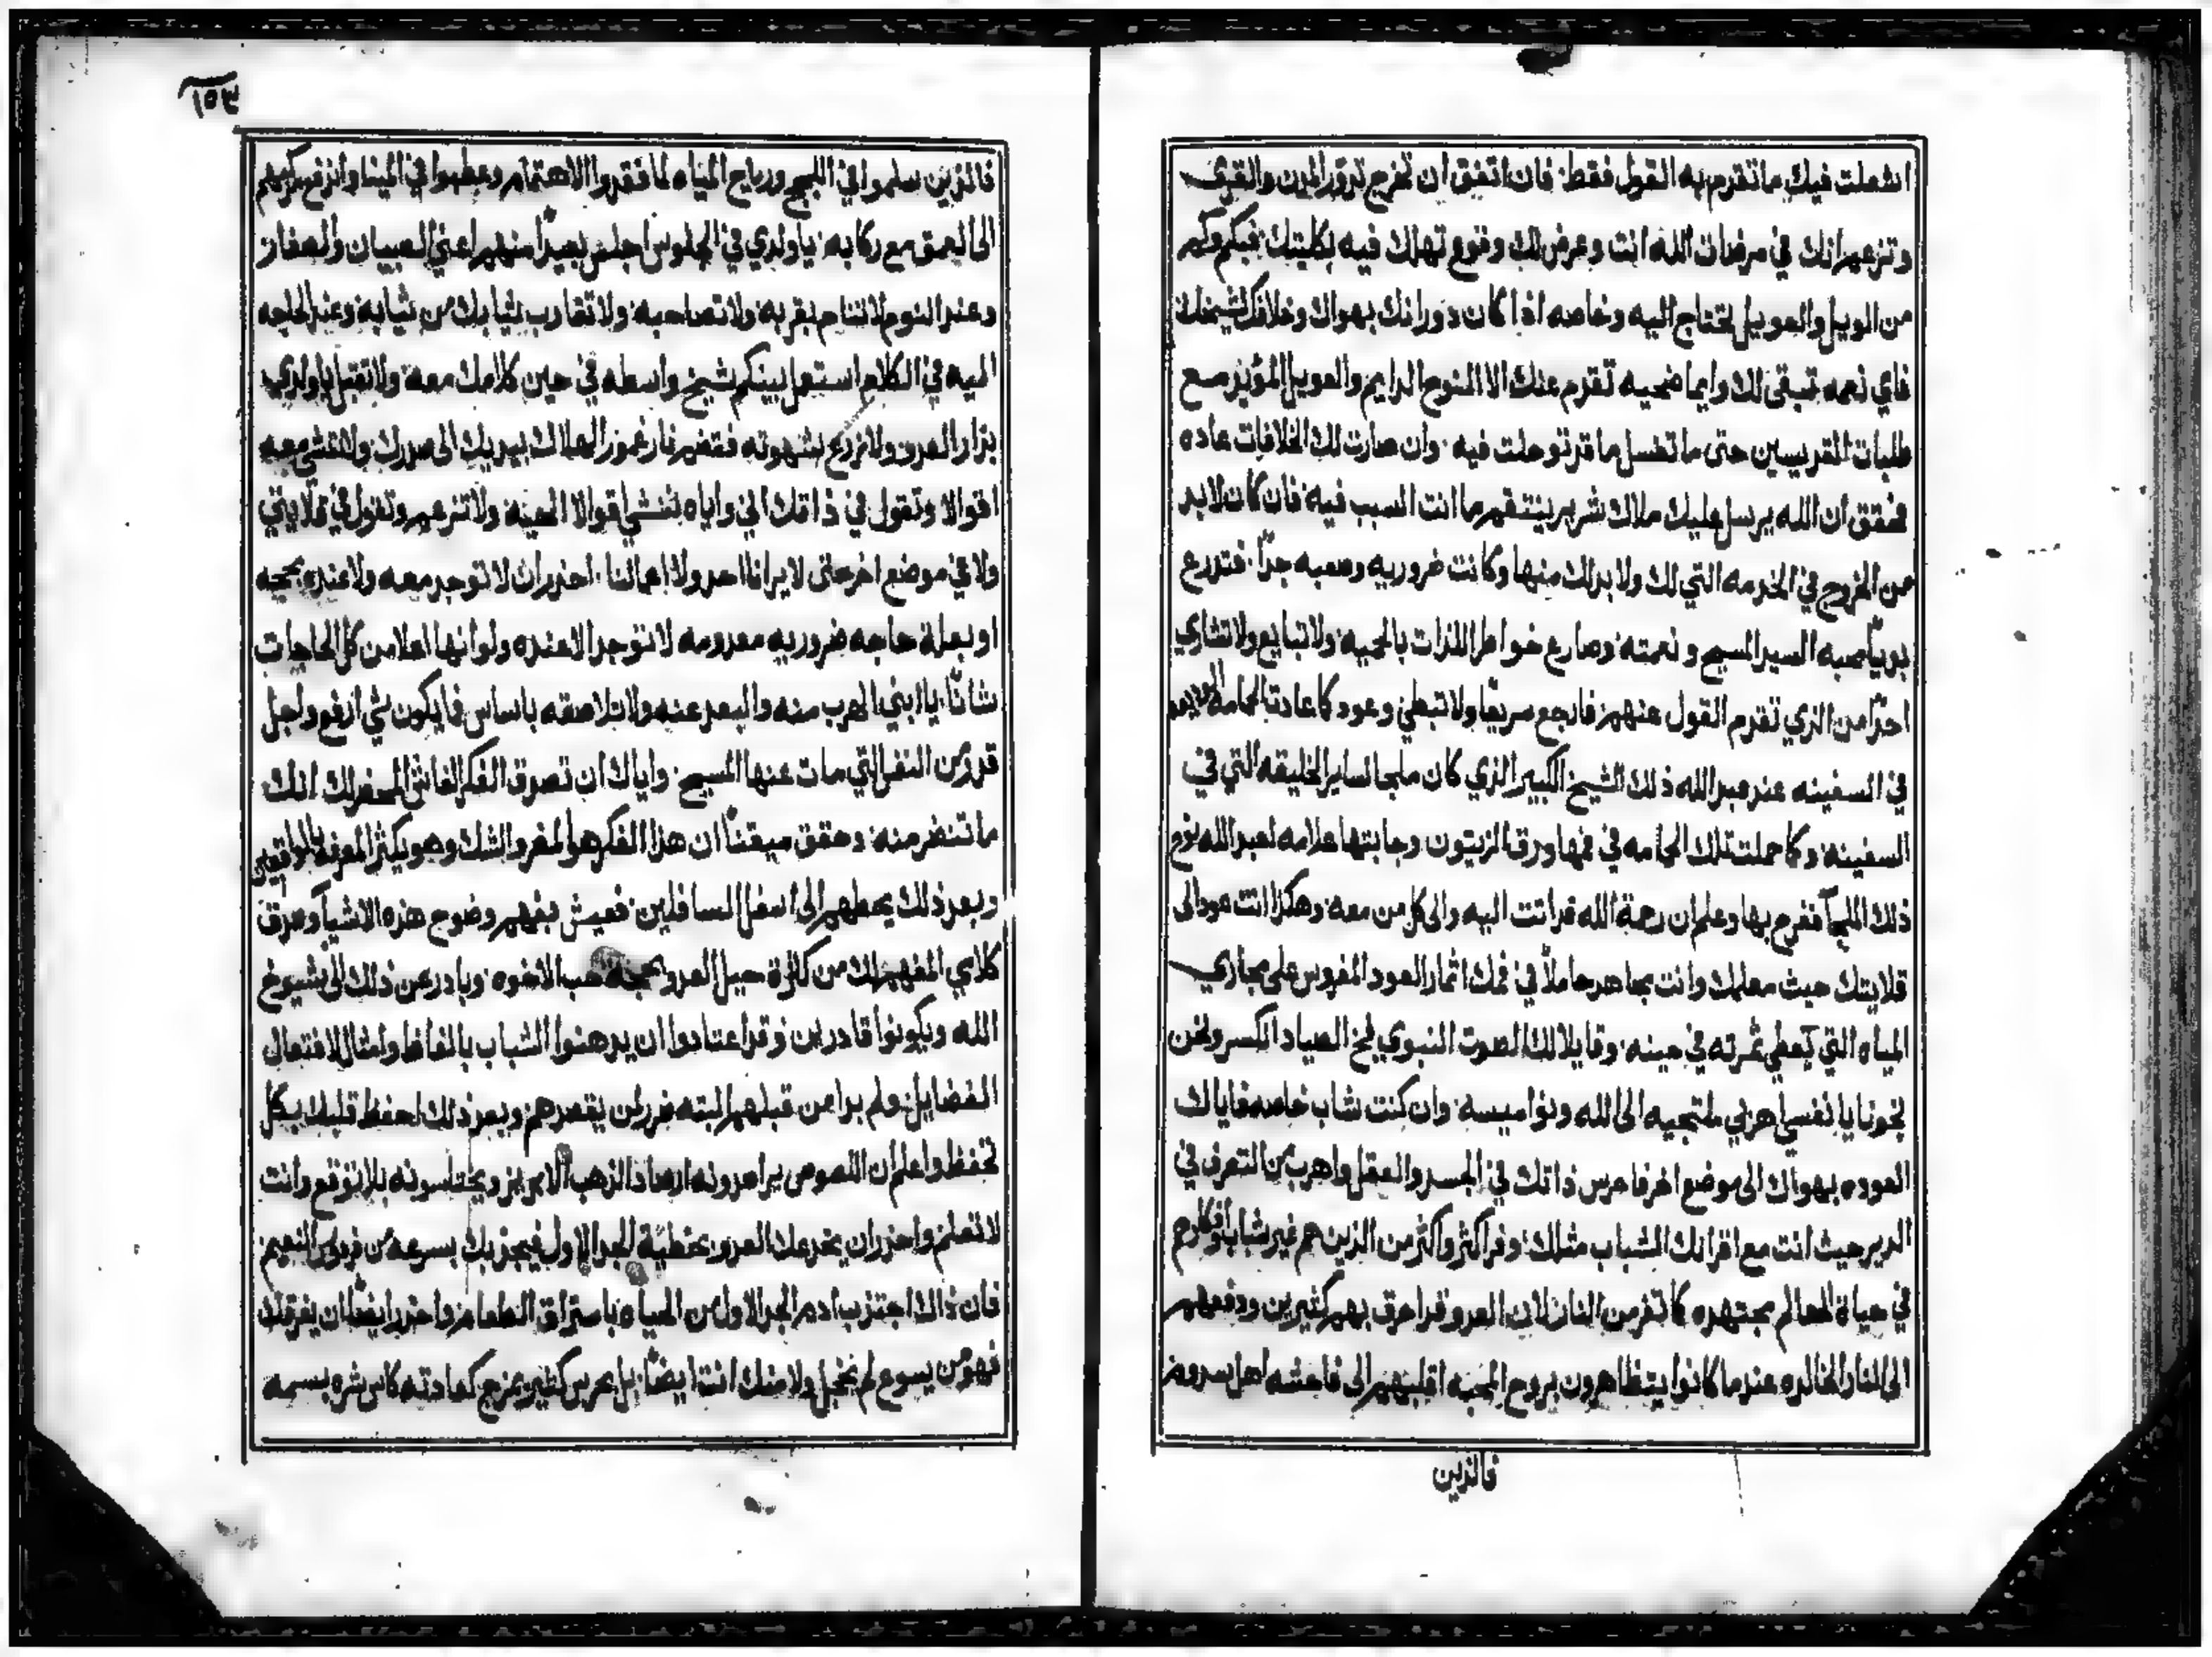 اشعلت فيك ما تقدم به القول فقط. فان اتفق ان تخرج تدور المدن والقرى
وتزعم انك في مرضات الله انت وعرض لك وقوع تهلك فيه بكليتك فبكم وكم
من الويل والعويل تحتاج اليه وخاصه اذا كان دورانك بهواك وخلافك لشيخك
فاي نعمه تبقى لك وايما ضحيه تقدم عنك الا النوح الدايم والعويل المؤبد مع
طلبات القديسين حتى ما تغسل ما قد توحلت فيه. وان صارت لك الخلافات عاده
فحقق ان الله يرسل عليك ملاك شرير ينتقم مما انت السبب فيه. فان كان لابد
من الخروج في الخدمه التي لك ولا بد لك منها وكانت ضروريه وصعبه جدًا. فتدرع
يا محبه السيد المسيح ونعمته. وصارع خواطر اللذات بالمحبه. ولا تبايع ولا تشاري
احدًا من الذي تقدم القول عنهم. فارجع سريعًا ولا تبطي وعود كما عادت الحمامه الوديعه
في السفينه عند عبد الله ذلك الشيخ الكبير الذي كان ملجا لساير الخليقه التي في
السفينه. وكما حملت تلك الحمامه في فمها ورق الزيتون وجابتها علامه لعبد الله نوح
ذلك المليا ففرح بها وعلم ان رحمة الله قد اتت اليه والى كل من معه. وهكذا انت عود الى
قلايتك حيث معلمك وانت مجاهد حاملاً في فمك اثمار العود المغروس على مجاري
المياه التي يعطي ثمرته في حينه. وقايلا لك الصوت النبوي فخ الصياد انكسر ونحن
نجونا يا نفسي اهربي ملتجيه الى الله ونواميسه. وان كنت شاب خاصه فاياك
العوده بهواك الى موضع اخر فاحرس ذاتك في الجسد والعقل واهرب من التصرف في
الدير حيث انت مع اقرانك الشباب مثلك. وفر اكثر واكثر من الذين هم غير شباب وافكارهم
في حياة العالم مجتهده كما تفر من النار. لان العدو قد احرق بهم كثيرين ودفعهم
الى النار الخالده عندما كانوا يتظاهرون بروح المحبه اقلبهم الى فاحشه اهل سدوم
فالذين
١٥٣
فالذين سلموا في اللجج ورياح المياه لما فقدوا الاهتمام وعطبوا في المينا وانزفهم كريهم
الى العمق مع ركابه. يا ولدي في الجلوس اجلس بعيدًا منهم اعني الصبيان والصغار
وعند النوم لا تنام بقربه ولا تصاحبه. ولا تقارب بثيابك من ثيابه. وعند الحاجه
اليه في الكلام استعمل بينكم شيخ واسطه في حين كلامك معه. ولا تقبل يا ولدي
بذار العدو ولا تزرع بشهوته فتضم نار غمور الهلاك بيديك الى صدرك. ولا تمشي معه
اقوالا وتقول في ذاتك اني واياه نمشي اقوالا المعينه. ولا تزعم وتقول في قلايتي
ولا في موضع اخر حتى لا يرانا احد ولا اعمالنا. احذر ان لا توجد معه ولا عنده بحجه
او بعلة حاجه ضروريه معدومه لا توجد الا عنده ولو انها اعلا من كل الحاجات
شانًا. يا ابني اهرب منه وابعد عنه ولا تلاصقه باساس فما يكون شي ارفع واجل
قدر من النفس التي مات عنها المسيح. واياك ان تصدق الفكر الغاش المسفر لك انك
ما تنضر منه. وحقق متيقنًا ان هذا الفكر هو المغر والشك وهو يكثر المعرفه
وبعد ذلك يحطهم الى اسفل السافلين. فعيش بفهم وضوح هذه الاشيا وصدق
كلامي المفهم لك من كثرة حيل العدو بحجة حب الاخوه. وبادر عن ذلك الى شيوخ
الله ويكونوا قادرين وقد اعتادوا ان يدهنوا الشباب بالفاظ وامثال لافتعال
الفضايل. ولم يدا من قبلهم البته ضرر لمن يقصدهم. وبعد ذلك احفظ قلبك بكل
تحفظ واعلم ان اللصوص يراصدونه ارصاد الذهب الابريز ويختلسونه بلا توقع وانت
لا تعلم. واحذر ان يخدعك العدو بخطية الجد الاول فيجذبك بسرعه من فردوس النعيم
فان ذاك اجتذب ادم الجد الاول من الحياه باستراق الطعام. واحذر ايضًا ان يغرقك
فهو من يسوع لم يخجل ولا منك انت ايضًا. بل يحرس كثير يمزج كعادته كاس شره بسمه